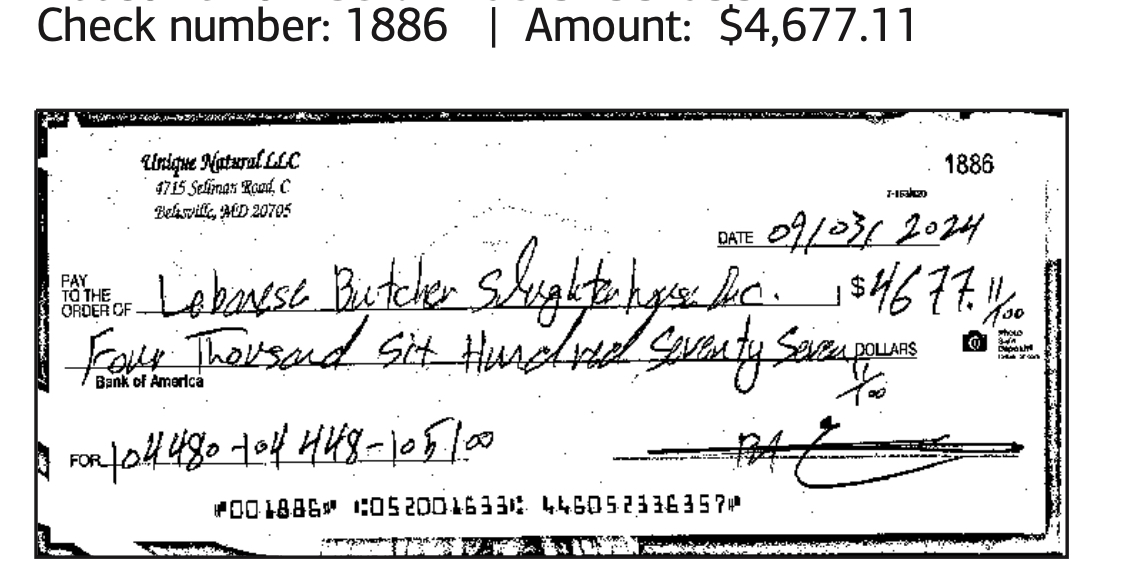 Check number: 1886 | Amount: $4,677.11
Unique Natural LLC
4715 Sellman Road, C
Beltsville, MD 20705
1886
DATE 09/03/2024
PAY TO THE ORDER OF Lebanese Butcher Slughterhouse Inc. $4677.11/100
Four Thousand Six Hundred Seventy Seven DOLLARS
11/100
Bank of America
Photo Safe Deposit®
FOR 104480-104448-105100
⑈001886⑈ ⑆052001633⑆ 446052336357⑈